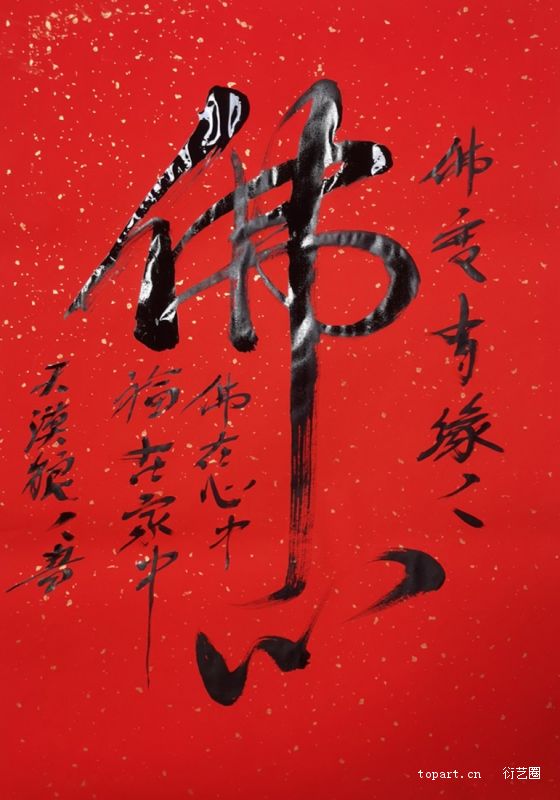 佛心
佛度有缘人
佛在心中
福在家中
天漠狼人書
topart.cn 衍艺圈